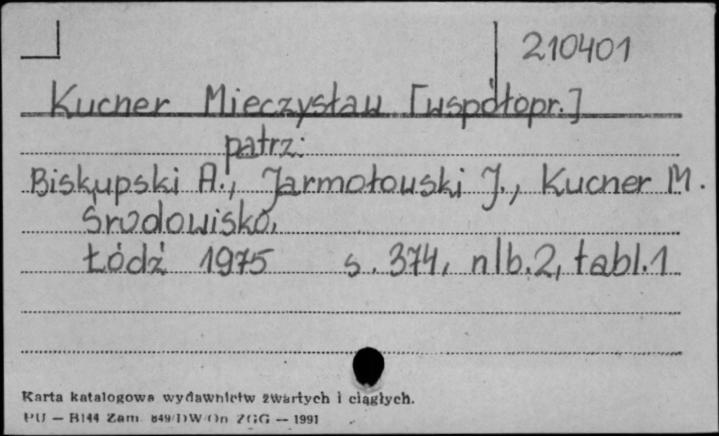 210401
Kucner Mieczysław [współopr.]
patrz:
Biskupski A., Jarmołowski J., Kucner M.
Środowisko.
Łódź 1975 s. 374, nlb. 2, tabl. 1
Karta katalogowa wydawnictw zwartych i ciągłych.
PU — B144 Zam. 849/DW/On ZGG — 1991